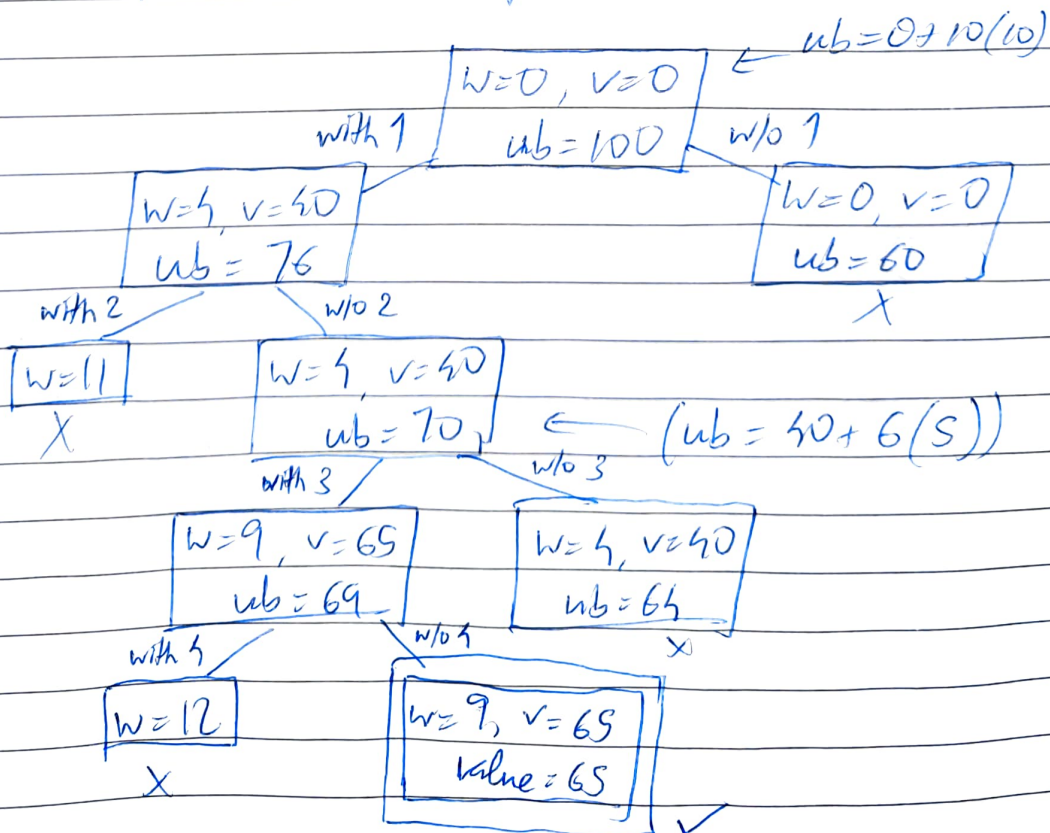 ub=0+10(10)
w=0, v=0
ub=100
with 1
w/o 1
w=4, v=40
ub=76
w=0, v=0
ub=60
X
with 2
w/o 2
w=11
X
w=4, v=40
ub=70
(ub=40+6(5))
with 3
w/o 3
w=9, v=65
ub=69
w=4, v=40
ub=64
X
with 4
w/o 4
w=12
X
w=9, v=65
value=65
✓